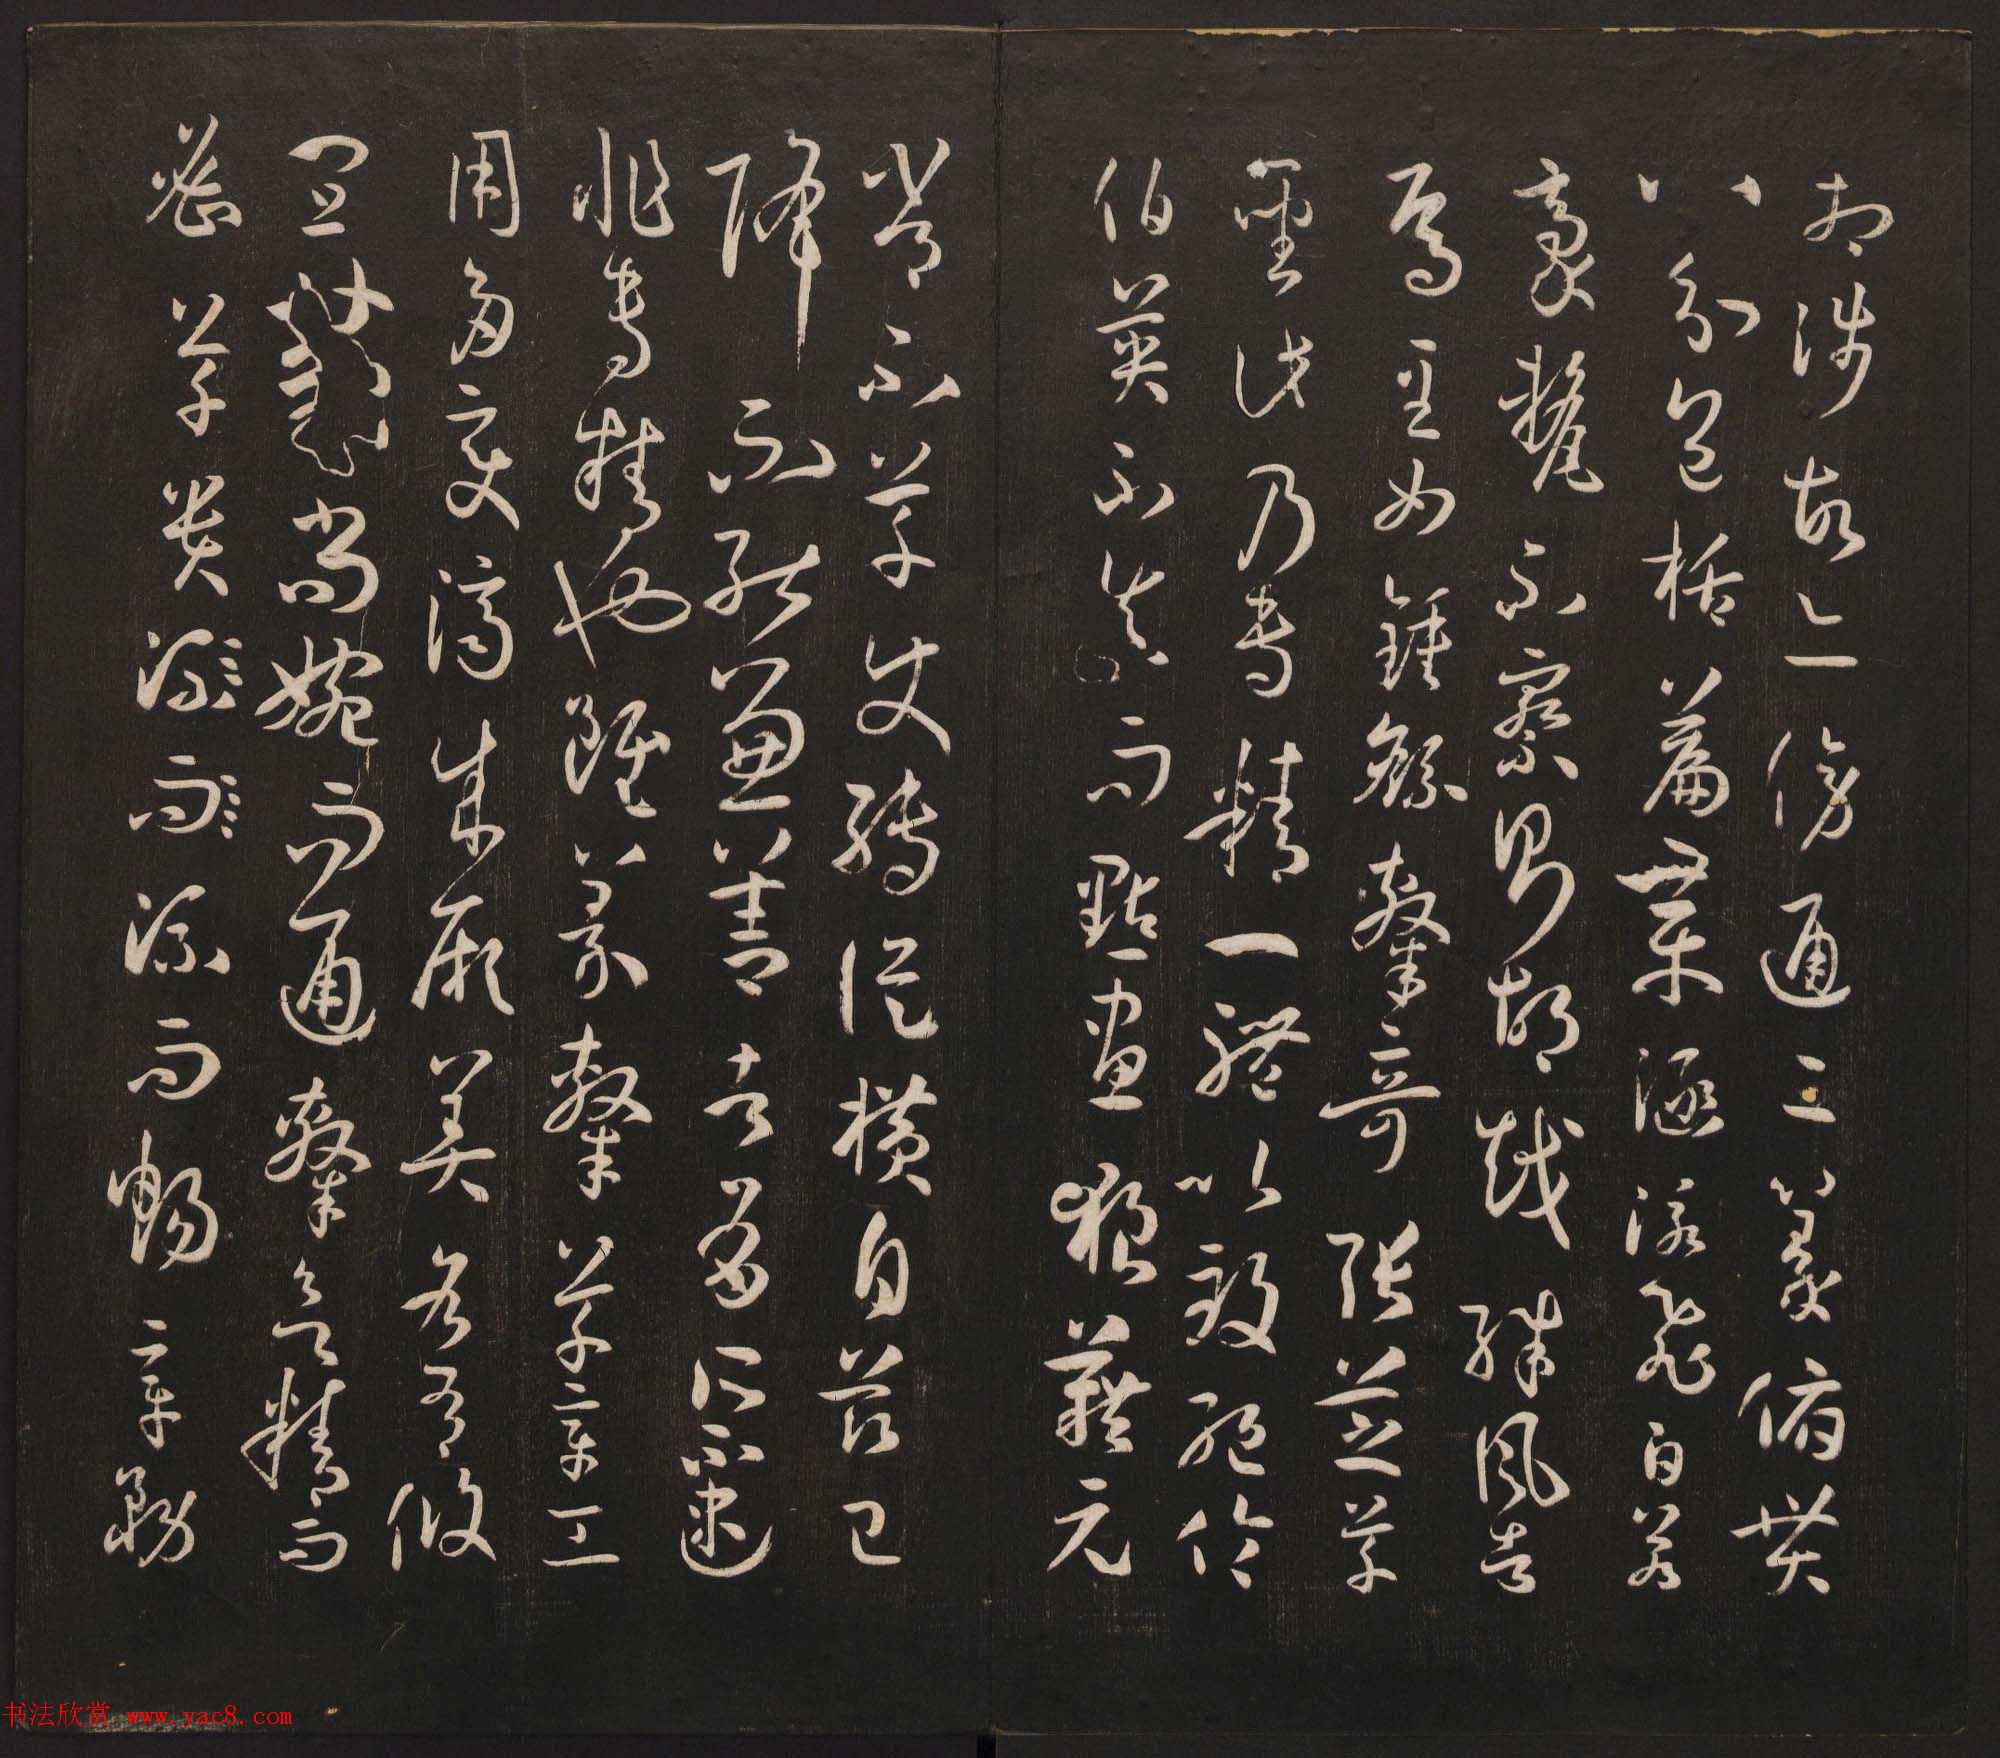 相涉故亦傍通二篆俯貫
八分包括篇章涵泳飛白若
豪氂不察則胡越殊風者
焉至如鍾繇隸奇張芝草
聖此乃專精一體以致絕倫
伯英不真而點畫狼藉元
常不草使轉縱橫自茲已
降不能兼善者有所不逮
非專精也雖篆隸草章工
用多變濟成厥美各有攸
宜篆尚婉而通隸欲精而
密草貴流而暢章務
书法欣赏 www.yac8.com